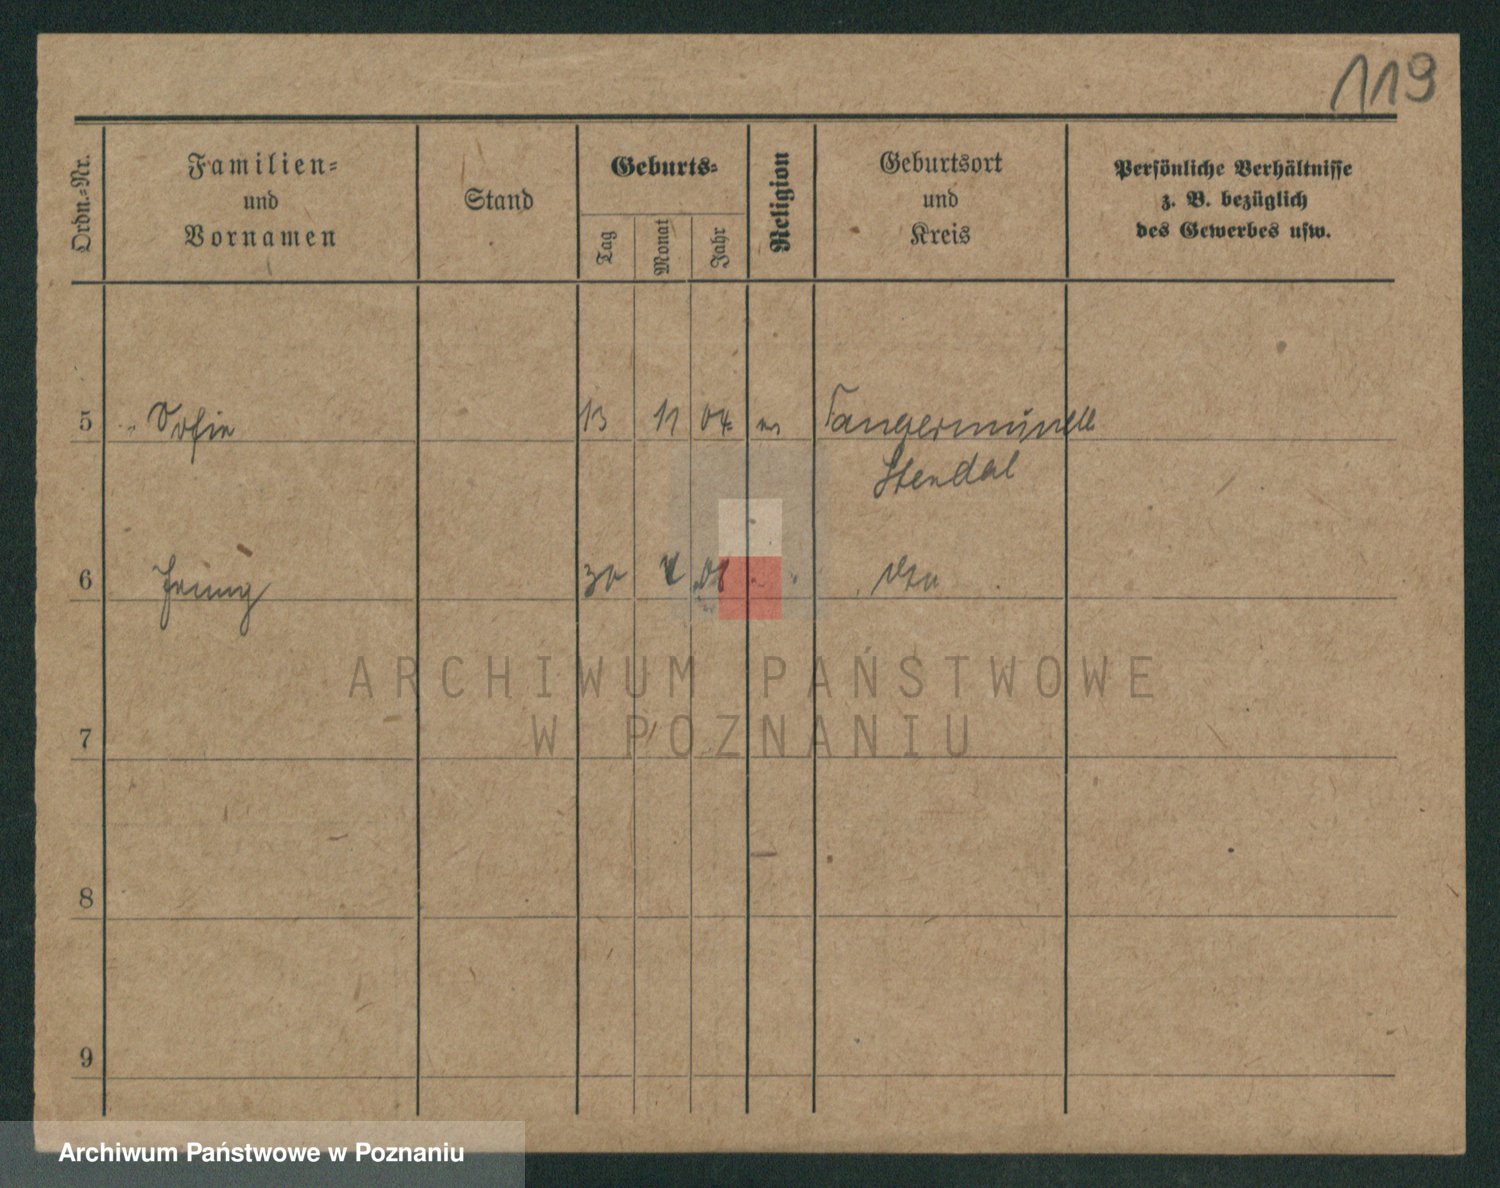 119
Ordn.=Nr.
Familien=
und
Vornamen
Stand
Geburts=
Tag
Monat
Jahr
Religion
Geburtsort
und
Kreis
Persönliche Verhältnisse
z. B. bezüglich
des Gewerbes usw.
5 " Sofie 13 11 04 Tangermünde
Stendal
6 30
7
8
9
ARCHIWUM PAŃSTWOWE
W POZNANIU
Archiwum Państwowe w Poznaniu